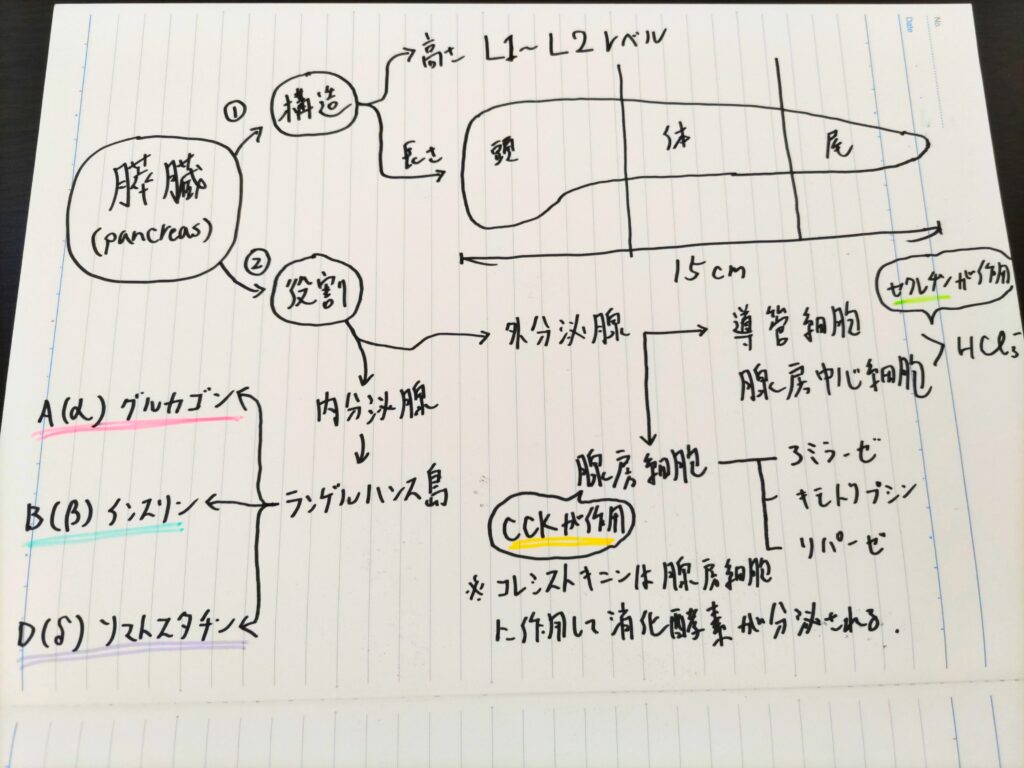 No.
Date
① 構造
高さ L1〜L2レベル
長さ
頭 体 尾
15cm
膵臓
(pancreas)
② 役割
外分泌腺
導管細胞
腺房中心細胞
セクレチンが作用
内分泌腺
ランゲルハンス島
A(α) グルカゴン
B(β) インスリン
D(δ) ソマトスタチン
腺房細胞
CCKが作用
キモトリプシン
リパーゼ
※ コレシストキニンは腺房細胞
に作用して消化酵素が分泌される.